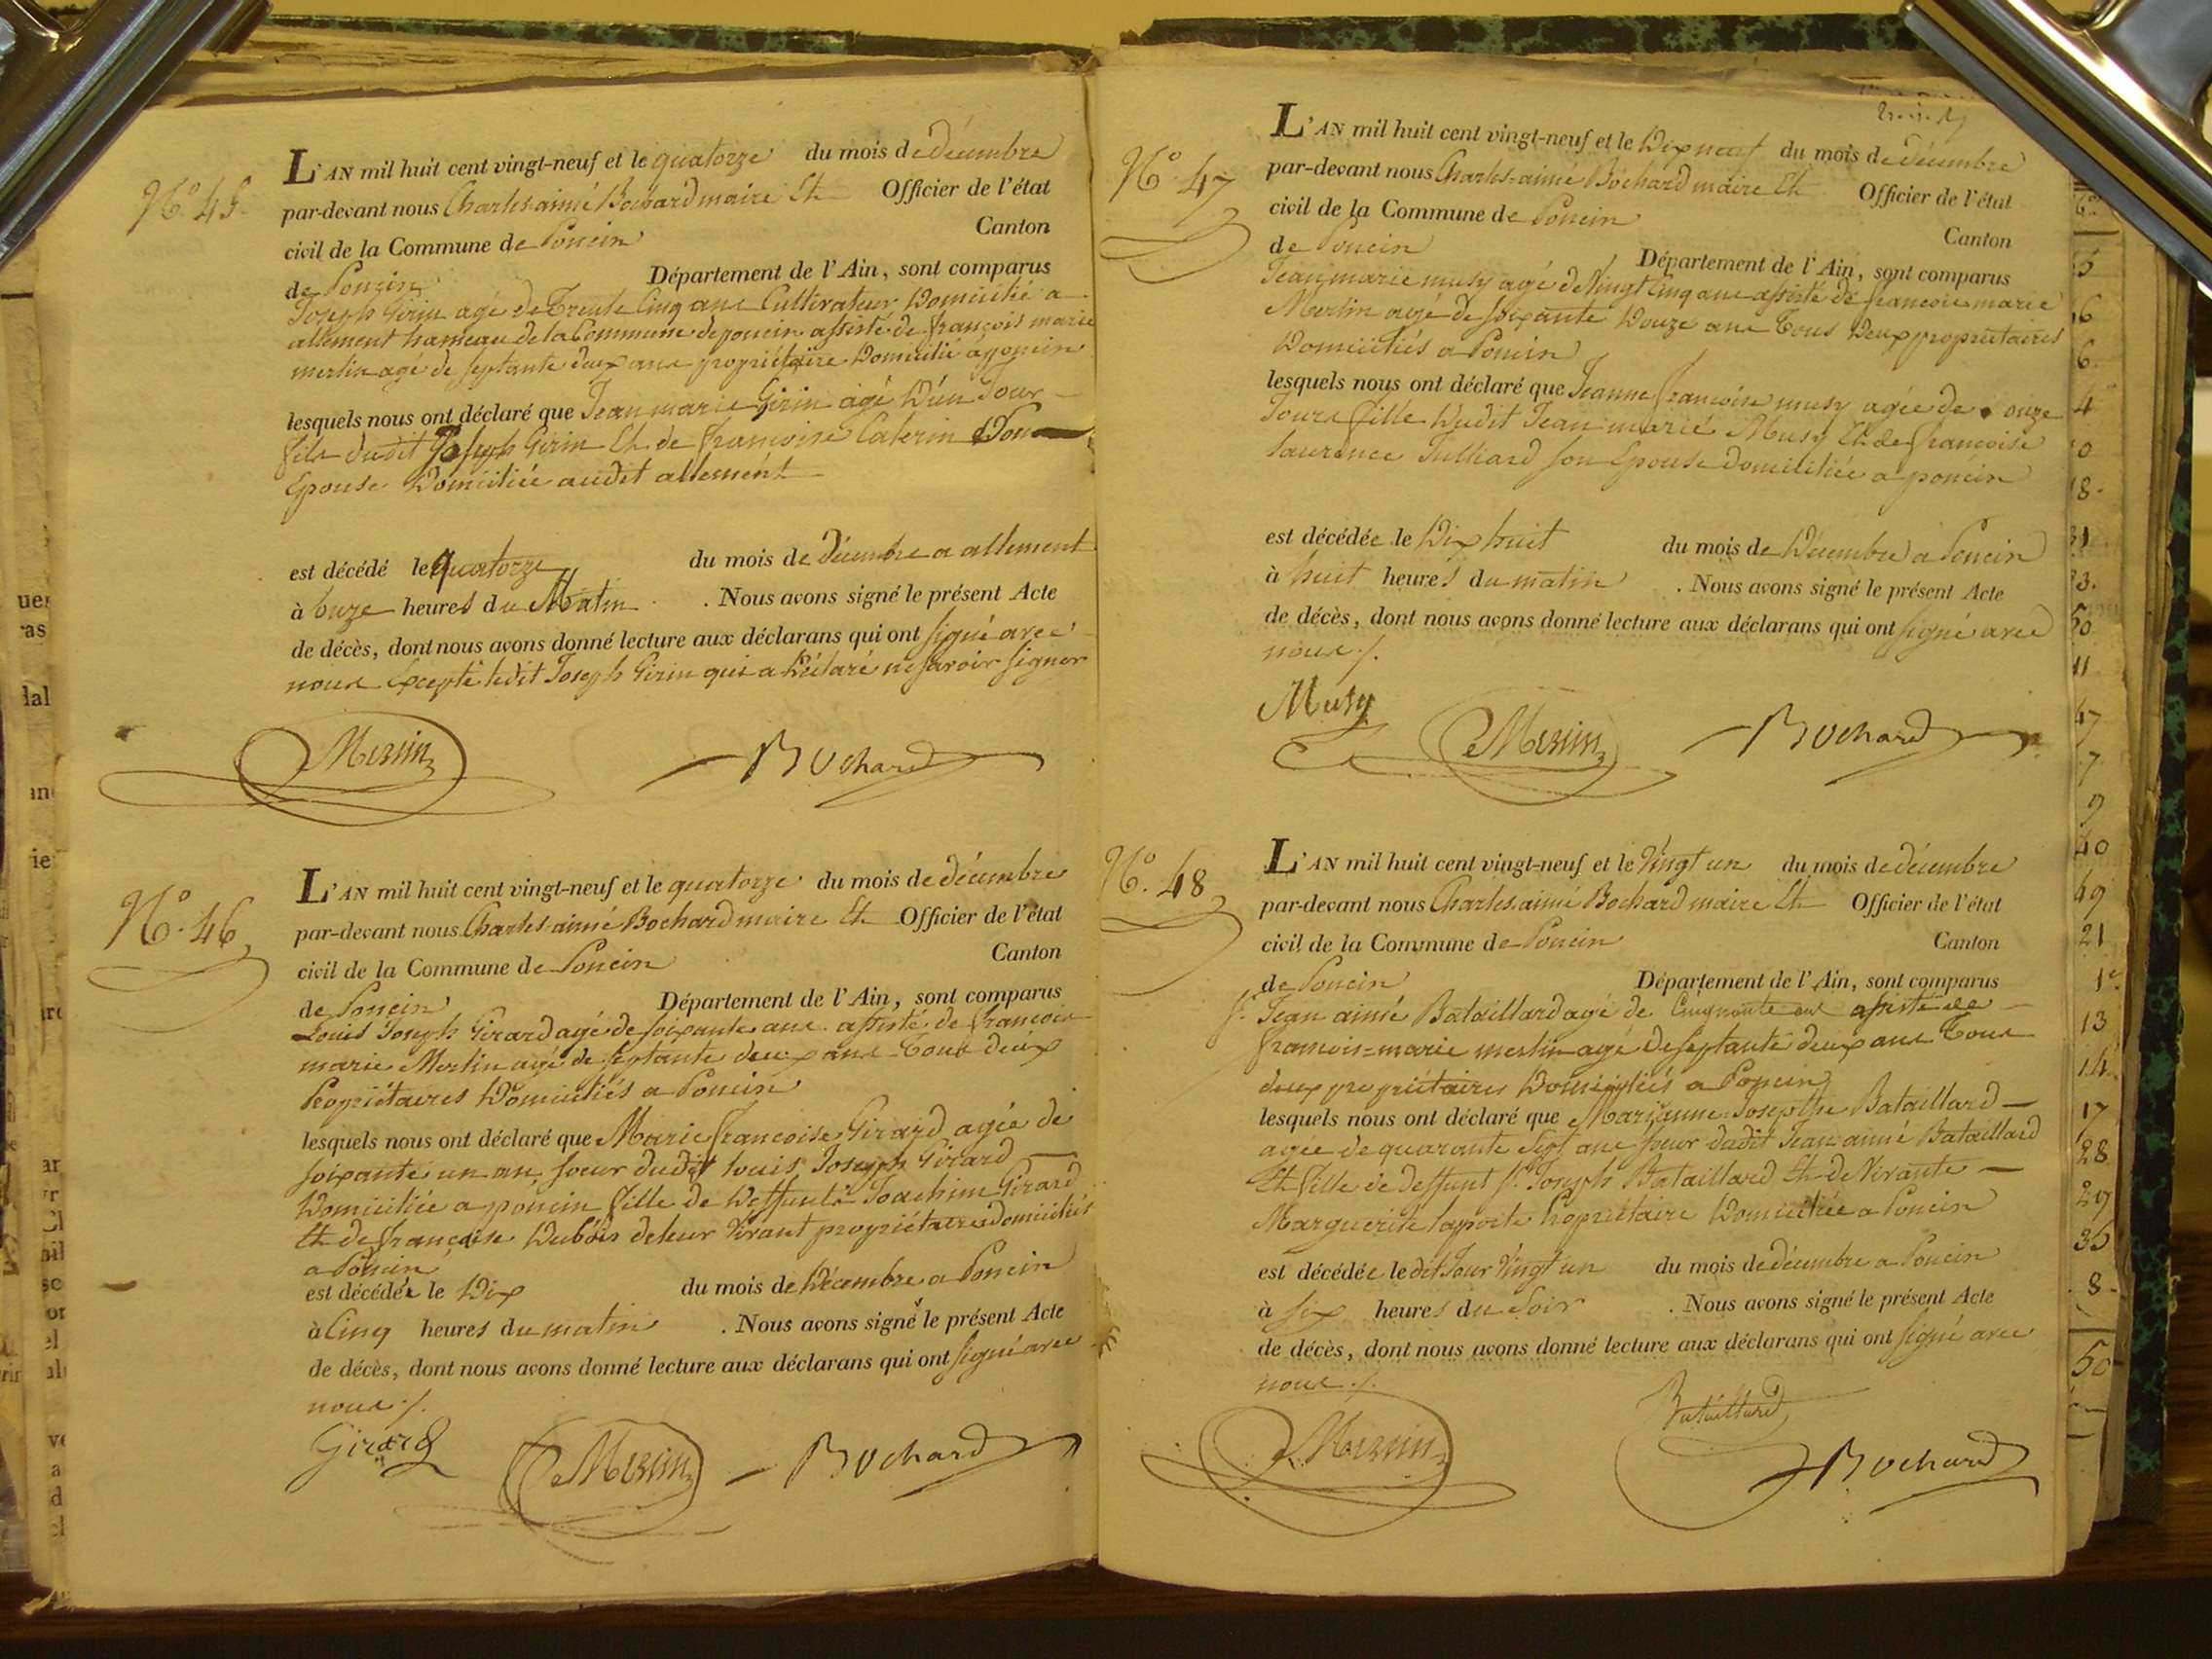 N.º 45.
L'AN mil huit cent vingt-neuf et le quatorze du mois de décembre
par-devant nous Charles aimé Bochard maire Et Officier de l'état
civil de la Commune de Poncin Canton
de Poncin Département de l'Ain, sont comparus
Joseph Girin agé de Trente Cinq ans Cultivateur Domicilié a
allement hameau de la Commune de poncin assisté de françois marie
merlin agé de septante deux ans propriétaire Domicilié à poncin
lesquels nous ont déclaré que Jean marie Girin agé D'un Jour
fils dudit Joseph Girin Et de françoise Caterin Son
Epouse Domiciliée audit allement
est décédé le quatorze du mois de décembre a allement
à onze heures du Matin . Nous avons signé le présent Acte
de décès, dont nous avons donné lecture aux déclarans qui ont signé avec
nous Excepté ledit Joseph Girin qui a Déclaré ne savoir signer
Merlin Bochard
N.º 46
L'AN mil huit cent vingt-neuf et le quatorze du mois de décembre
par-devant nous Charles aimé Bochard maire Et Officier de l'état
civil de la Commune de Poncin Canton
de Poncin Département de l'Ain, sont comparus
Louis Joseph Girard agé de soixante ans assisté de françois
marie Merlin agé de septante deux ans Tous deux
Propriétaires Domiciliés a Poncin
lesquels nous ont déclaré que Marie françoise Girard agée de
soixante un an, soeur dudit louis Joseph Girard
Domiciliée a poncin fille de Deffunts Joachim Girard
Et de françoise Dubois de leur vivant propriétaires domiciliés
a Poncin
est décédée le Dix du mois de Décembre a Poncin
à Cinq heures du matin . Nous avons signé le présent Acte
de décès, dont nous avons donné lecture aux déclarans qui ont signé avec
nous ./.
Girard Merlin Bochard
N.º 47
L'AN mil huit cent vingt-neuf et le Dix neuf du mois de décembre
par-devant nous Charles-aimé Bochard maire Et Officier de l'état
civil de la Commune de Poncin Canton
de Poncin Département de l'Ain, sont comparus
Jean marie musy agé de Vingt Cinq ans assisté de francois marie
Merlin agé de soixante Douze ans Tous Deux propriétaires
Domiciliés a Poncin
lesquels nous ont déclaré que Jeanne françoise musy agée de onze
Jours fille Dudit Jean marie Musy Et de françoise
laurence Julliard son Epouse Domiciliée a poncin
est décédée le Dix huit du mois de Décembre a Poncin
à huit heures du matin . Nous avons signé le présent Acte
de décès, dont nous avons donné lecture aux déclarans qui ont signé avec
nous ./.
Musy Merlin Bochard
N.º 48
L'AN mil huit cent vingt-neuf et le Vingt un du mois de décembre
par-devant nous Charles-aimé Bochard maire Et Officier de l'état
civil de la Commune de Poncin Canton
de Poncin Département de l'Ain, sont comparus
Sr. Jean aimé Bataillard agé de Cinquante ans assisté de
francois-marie merlin agé de septante deux ans Tous
deux propriétaires Domiciliés a Poncin
lesquels nous ont déclaré que Marianne Josephe Bataillard
agée de quarante sept ans soeur dudit Jean aimé Bataillard
Et fille de deffunt Sr. Joseph Bataillard Et de Vivante
Marguerite laporte Propriétaire Domiciliée a Poncin
est décédée le dit Jour Vingt un du mois de décembre a Poncin
à six heures du Soir . Nous avons signé le présent Acte
de décès, dont nous avons donné lecture aux déclarans qui ont signé avec
nous ./.
Merlin Bataillard Bochard